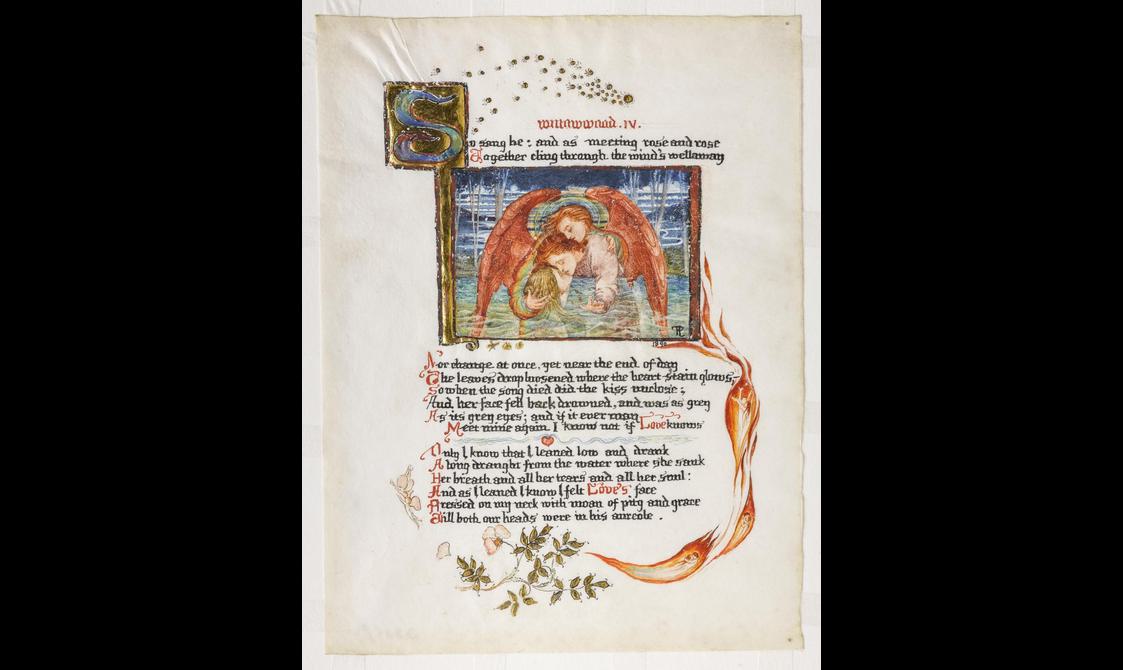 Willowwood . IV .
So sang he : and as meeting rose and rose
Together cling through the wind's wellaway
Nor change at once, yet near the end of day
The leaves drop loosened where the heart-stain glows,-
So when the song died did the kiss unclose ;
And her face fell back drowned, and was as grey
As its grey eyes ; and if it ever may
Meet mine again I know not if Love knows
Only I know that I leaned low and drank
A long draught from the water where she sank
Her breath and all her tears and all her soul :
And as I leaned I know I felt Love's face
Pressed on my neck with moan of pity and grace
Till both our heads were in his aureole .